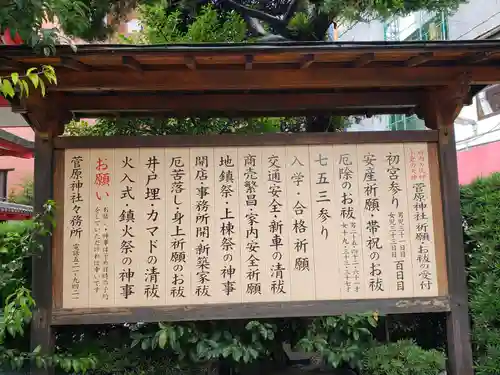 菅原神社祈願お祓の受付
初宮参り 男児三十一日目 女児三十三日目 百日目
安産祈願・帯祝のお祓
厄除のお祓
七五三参り
入学・合格祈願
交通安全・新車の清祓
商売繁昌・家内安全祈願
地鎮祭・上棟祭の神事
開店・事務所開・新築家祓
厄苦落し・身上祈願のお祓
井戸埋・カマドの清祓
火入式・鎮火祭の神事
お願い
菅原神社々務所